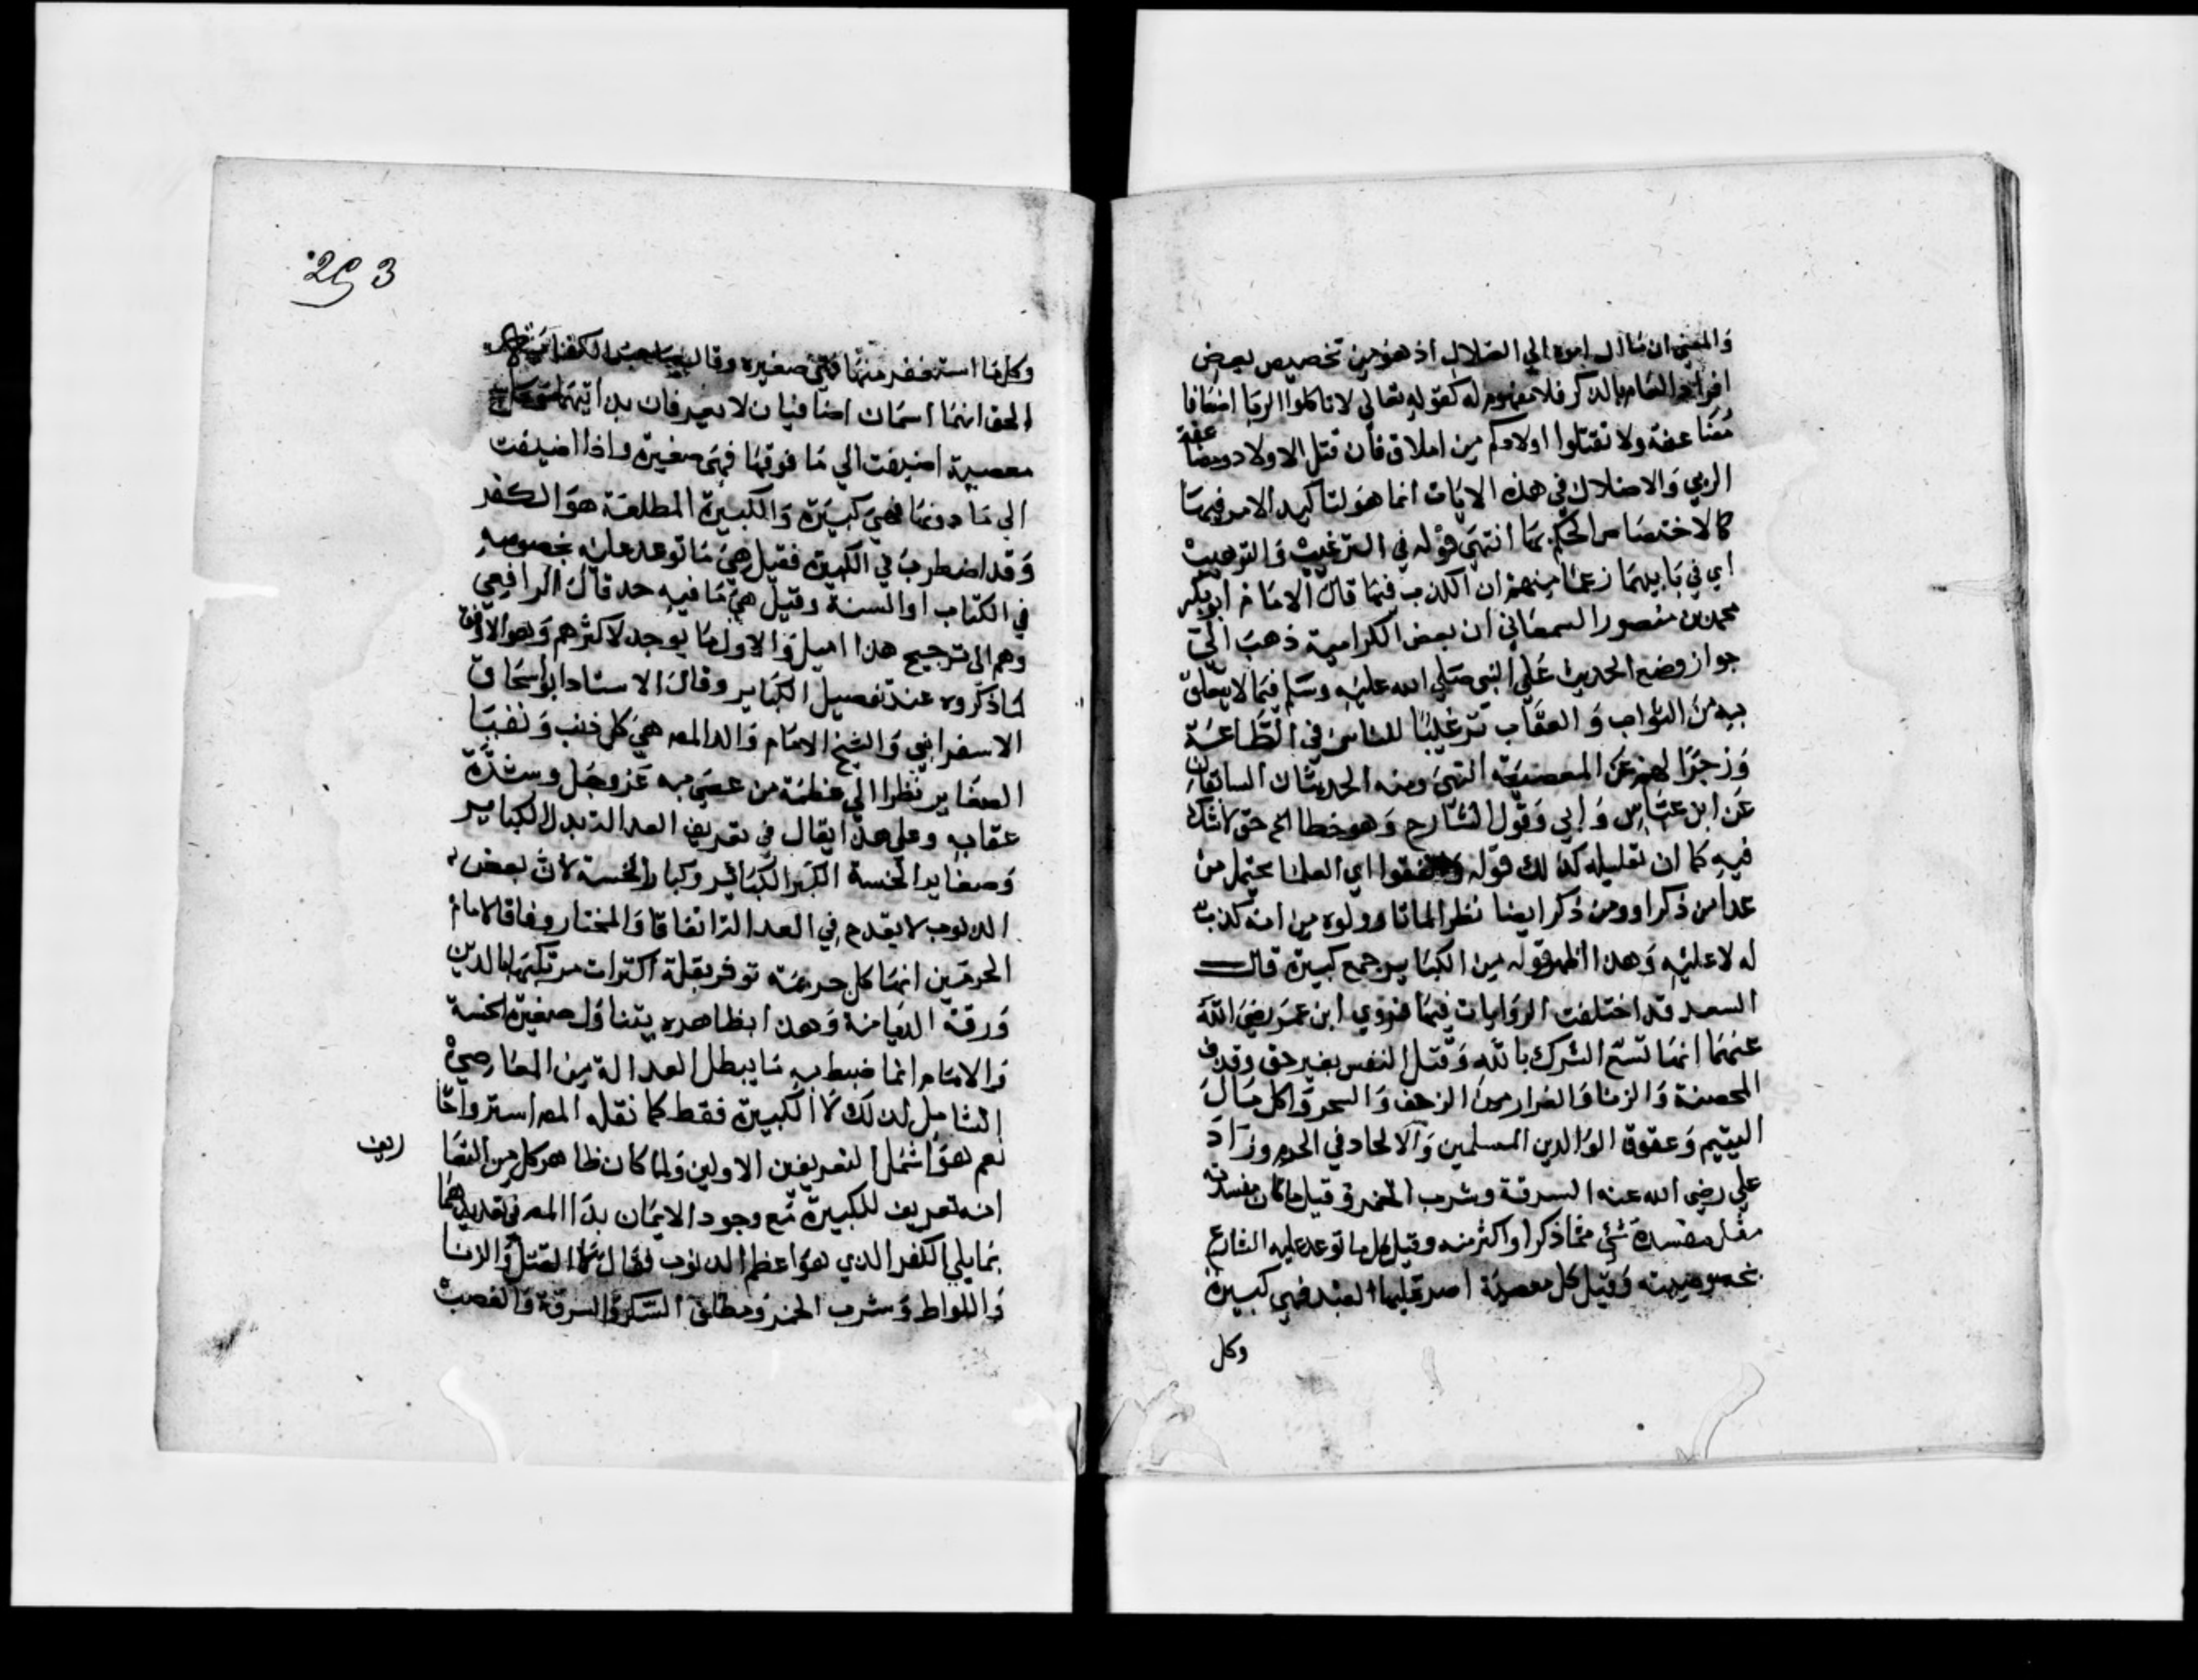 والمعني ان مآل امره الي الضلال اذ هو من تخصيص بعض
افراد العام بالذكر فلا مفهوم له كقوله تعالي لا تاكلوا الربا اضعافا
مضاعفة ولا تقتلوا اولادكم من املاق فان قتل الاولاد ومضاعفة
الربي والاضلال في هذه الايات انما هو لتاكيد الامر فيها
كالاختصاص الحكم بها انتهي قوله في الترغيب والترهيب
اي في بابيهما زعما منهم ان الكذب فيهما قال الامام ابو بكر
محمد بن منصور السمعاني ان بعض الكرامية ذهب الي
جواز وضع الحديث علي النبي صلي الله عليه وسلم فيما لا يتعلق
به من الثواب والعقاب ترغيبا للناس في الطاعة
وزجرا لهم عن المعصية انتهي ومنه الحديثان السابقان
عن ابن عباس وابي وقول الشارح وهو خطا الخ حق لا شك
فيه كما ان تعليله كذلك قوله واتفقوا اي العلما يحتمل من
عدا من ذكر او ومن ذكر ايضا نظرا لما تا ولوه من انه كذب
له لا عليه وهذا اظهر قوله من الكباير جمع كبيرة قال
السعد قد اختلفت الروايات فيها فروي ابن عمر رضي الله
عنهما انها تسع الشرك بالله وقتل النفس بغير حق وقذف
المحصنة والزنا والفرار من الزحف والسحر واكل مال
اليتيم وعقوق الوالدين المسلمين والالحاد في الحرم وزاد
علي رضي الله عنه السرقة وشرب الخمر وقيل ما كان مفسدته
مثل مفسدة شئ مما ذكر او اكثر منه وقيل كل ما توعد عليه الشارع
بخصوصيته وقيل كل معصية اصر عليها العبد فهي كبيرة
وكل
293
وكل ما استغفر منها فهي صغيره وقال صاحب الكفاية
الحق انهما اسمان اضافيان لا يعرفان بذاتيهما
معصية اضيفت الي ما فوقها فهي صغيرة واذا اضيفت
الي ما دونها فهي كبيرة والكبيرة المطلقة هو الكفر
وقد اضطرب في الكبيرة فقيل هي ما توعد عليه بخصوصه
في الكتاب او السنة وقيل هي ما فيه حد قال الرافعي
وهم الى ترجيح هذا اميل والاول ما يوجد لاكثرهم وهو الاوفق
لما ذكروه عند تفصيل الكباير وقال الاستاد ابو اسحاق
الاسفرايني والشيخ الامام والد المص هي كل ذنب ونفيا
الصغاير نظرا الي عظمة من عصي به عز وجل وشدة
عقابه وعلي هذا يقال في تعريف العدالة بدل الكباير
وصغاير الخسة اكبر الكباير وكبار الخسة لان بعض
الذنوب لا يقدح في العدالة اتفاقا والمختار وفاقا لامام
الحرمين انها كل جريمة توذن بقلة اكتراث مرتكبها بالدين
ورقة الديانة وهذا بظاهره يتناول صغيرة الخسة
والامام انما ضبط به ما يبطل العدالة من المعاصي
الشامل لذلك لا الكبيرة فقط كما نقله المص استرواحا
نعم هو اشمل التعريفين الاولين ولما كان ظاهر كل من التعاريف
انه تعريف للكبيرة مع وجود الايمان بدا المص في تعديدها
بما يلي الكفر الذي هو اعظم الذنوب فقال كالقتل والزنا
واللواط وشرب الخمر ومطلق السكر والسرقة والغصب